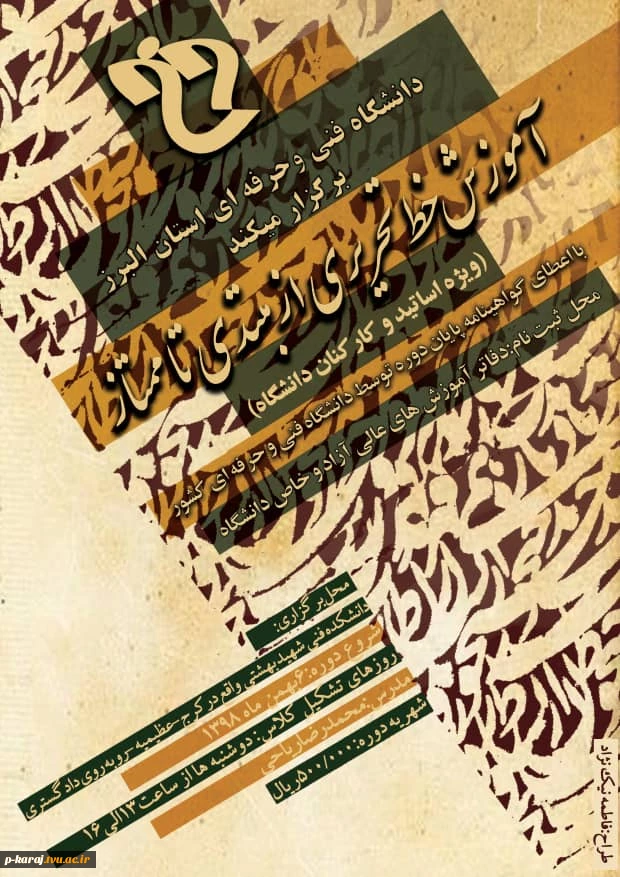 دانشگاه فنی و حرفه ای استان البرز
برگزار میکند
آموزش خط تحریری از مبتدی تا ممتاز
(ویژه اساتید و کارکنان دانشگاه)
با اعطای گواهینامه پایان دوره توسط دانشگاه فنی و حرفه ای کشور
محل ثبت نام:دفاتر آموزش های عالی آزاد و خاص دانشگاه
محل برگزاری:
دانشکده فنی شهید بهشتی واقع در کرج-عظیمیه-روبه روی دادگستری
شروع دوره:۶ بهمن ماه ۱۳۹۸
روزهای تشکیل کلاس: دوشنبه ها از ساعت ۱۳ الی ۱۶
مدرس:محمدرضا ریاحی
شهریه دوره:۵۰۰/۰۰۰ریال
طراح:فاطمه نیک نژاد
p-karaj.tvu.ac.ir